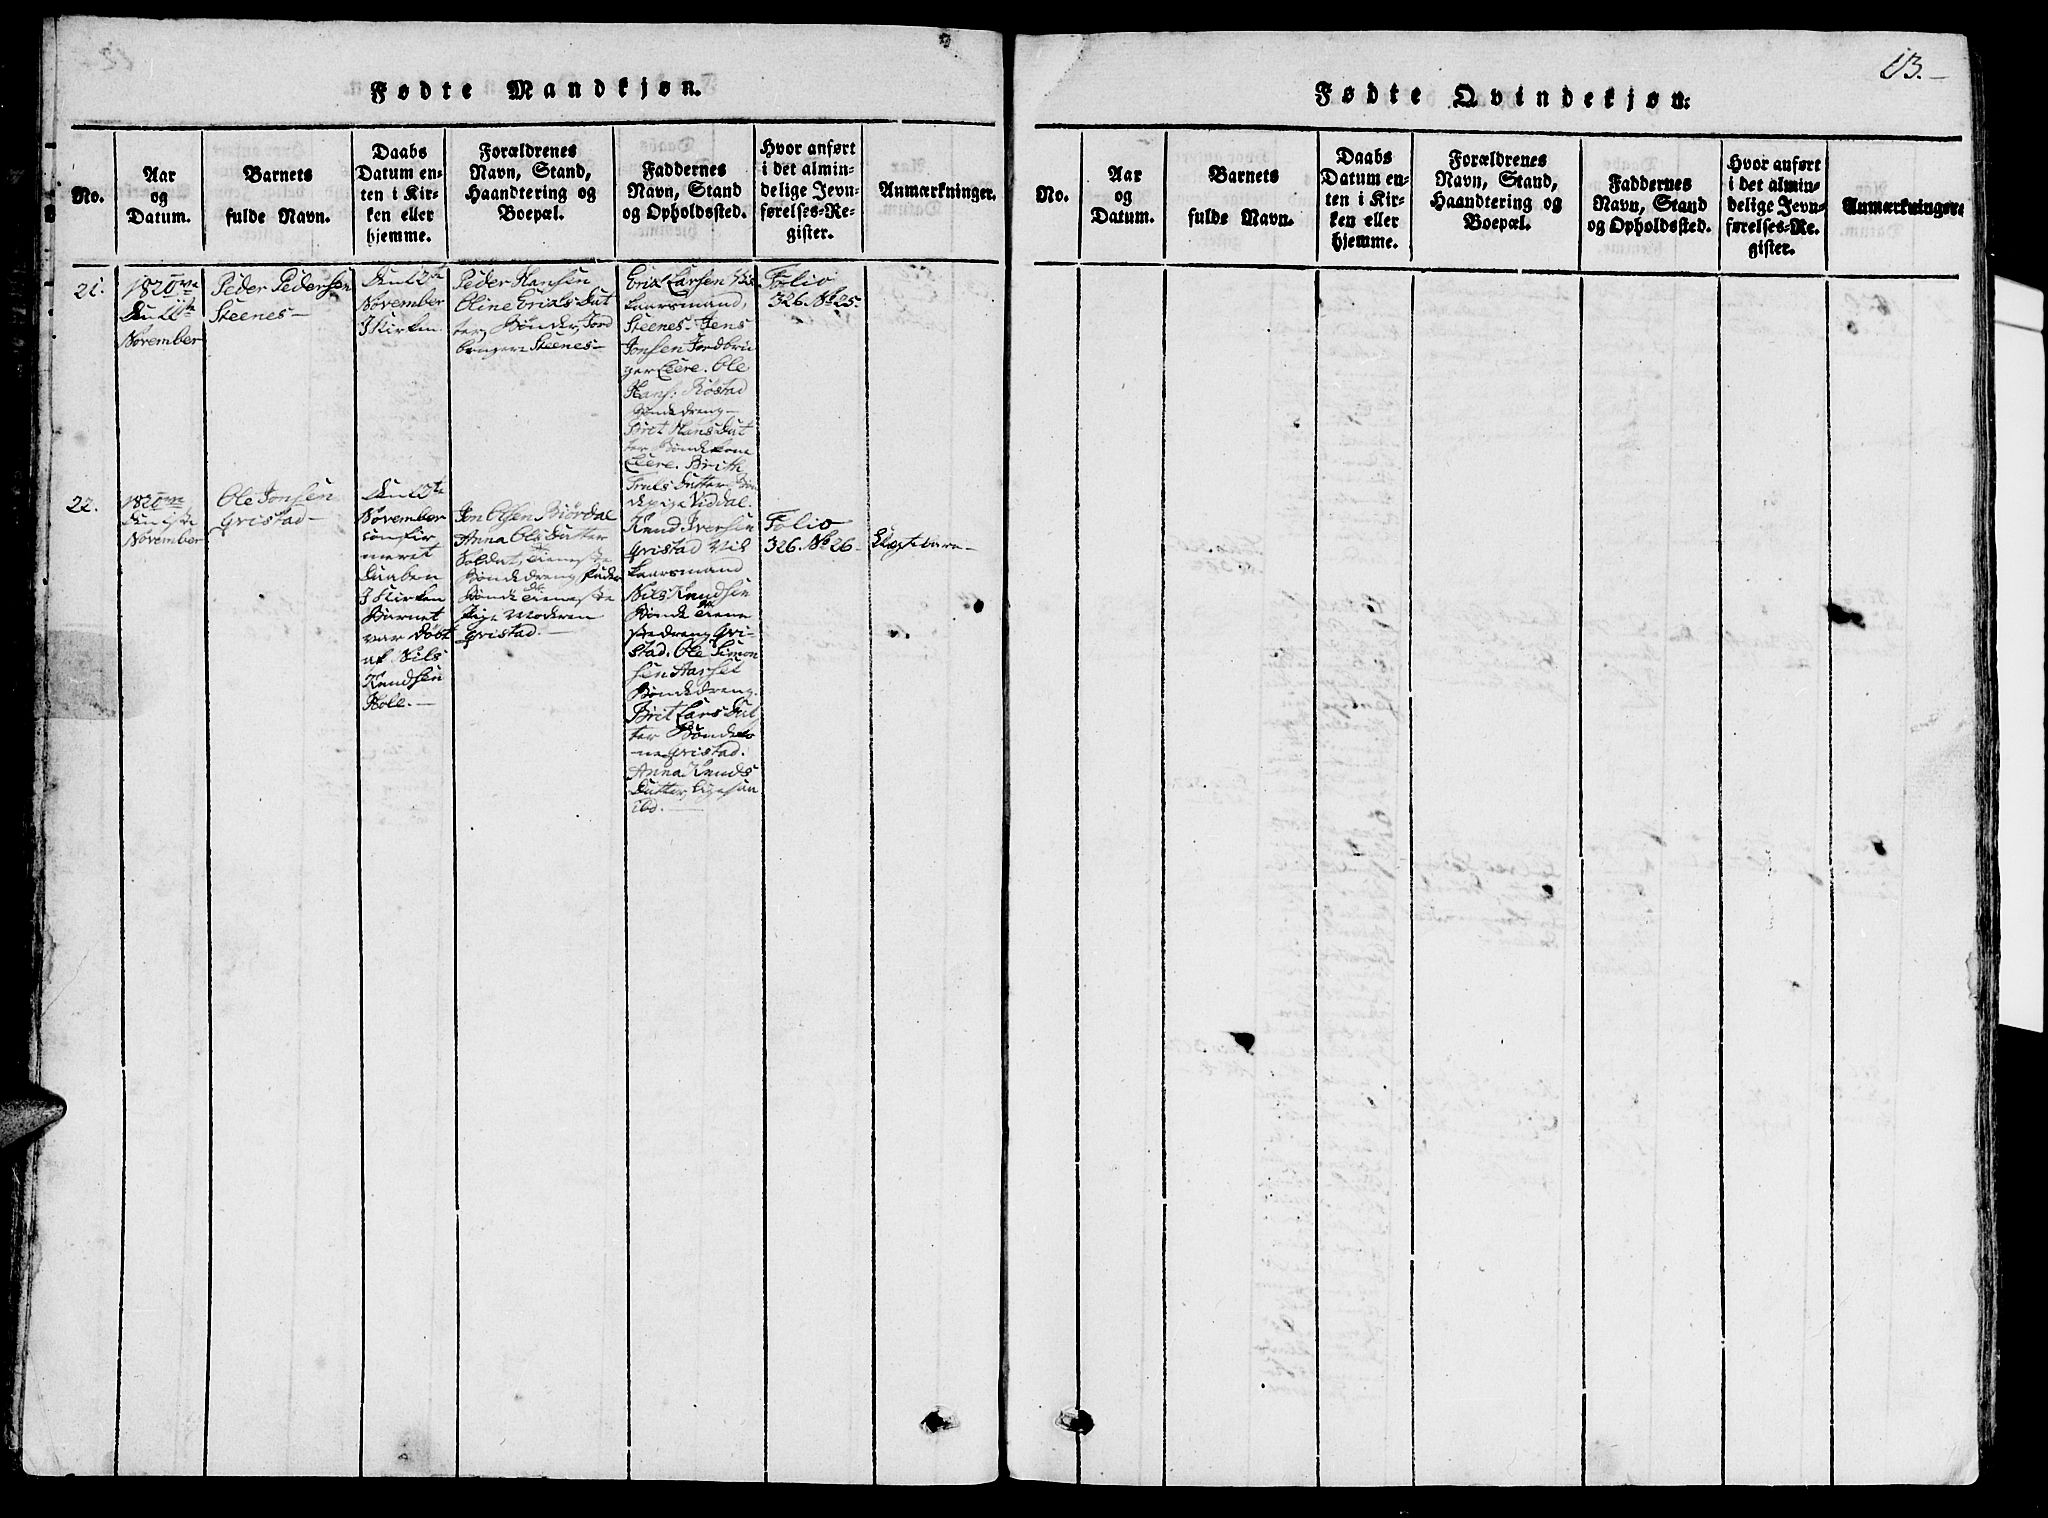 Fødte Mandkjøn.
No.
Aar
og
Datum.
Barnets
fulde Navn.
Daabs
Datum en-
ten i Kir-
ken eller
hjemme.
Forældrenes
Navn, Stand,
Haandtering og
Boepæl.
Faddernes
Navn, Stand
og Opholdssted.
Hvor anført
i det almin-
delige Jevn-
førelses-Re-
gister.
Anmærkninger.
21.
1820
Den 11te
November
Peder Pedersen
Steenes-
Den 12te
November
I Kirken.
Peder Hansen
Oline Erichs Dat
ter, Bønder, Jord
bruger Steenes-
Eric Larsen
kaarsmand,
Steenes. Jens
Jonsen Jordbru
ger Leere. Ole
Hans: Røstad
Bondedreng-
Biret Hans Dat
ter Bondekone
Leere. Brith
Truls Datter, Bon
depige Viddal.
Folio
326. No 25.
22.
1820
Den 1ste
November
Ole Jonsen
Gristad-
Den 12te
November
confir
meret
Daaben
I Kirken
Barnet
var døbt
af Nils
Knudsen
Hole.-
Jon Olsen Biørdal
Anna Ols Datter
Soldat, Tieneste
Bondedreng Fader
Bonde Tieneste
Pige Moderen
Gristad.-
Knud Iversen
Gristad Vil
kaarsmand
Nils Knudsen
Bonde Tiene
stedreng Gri-
stad. Ole Simon
sen Aarset
Bondedreng.
Brit Lars Dat
ter Bondeko
ne Gristad.
Anna Knuds
Datter, Ligesaa
ibd.-
Folio
326. No 26-
Uægte barn-
13.-
Fødte Qvindekjøn:
No.
Aar
og
Datum.
Barnets
fulde Navn.
Daabs
Datum en-
ten i Kir-
ken eller
hjemme.
Forældrenes
Navn, Stand,
Haandtering og
Boepæl.
Faddernes
Navn, Stand
og Opholdssted.
Hvor anført
i det almin-
delige Jevn-
førelses-Re-
gister.
Anmærkninger.